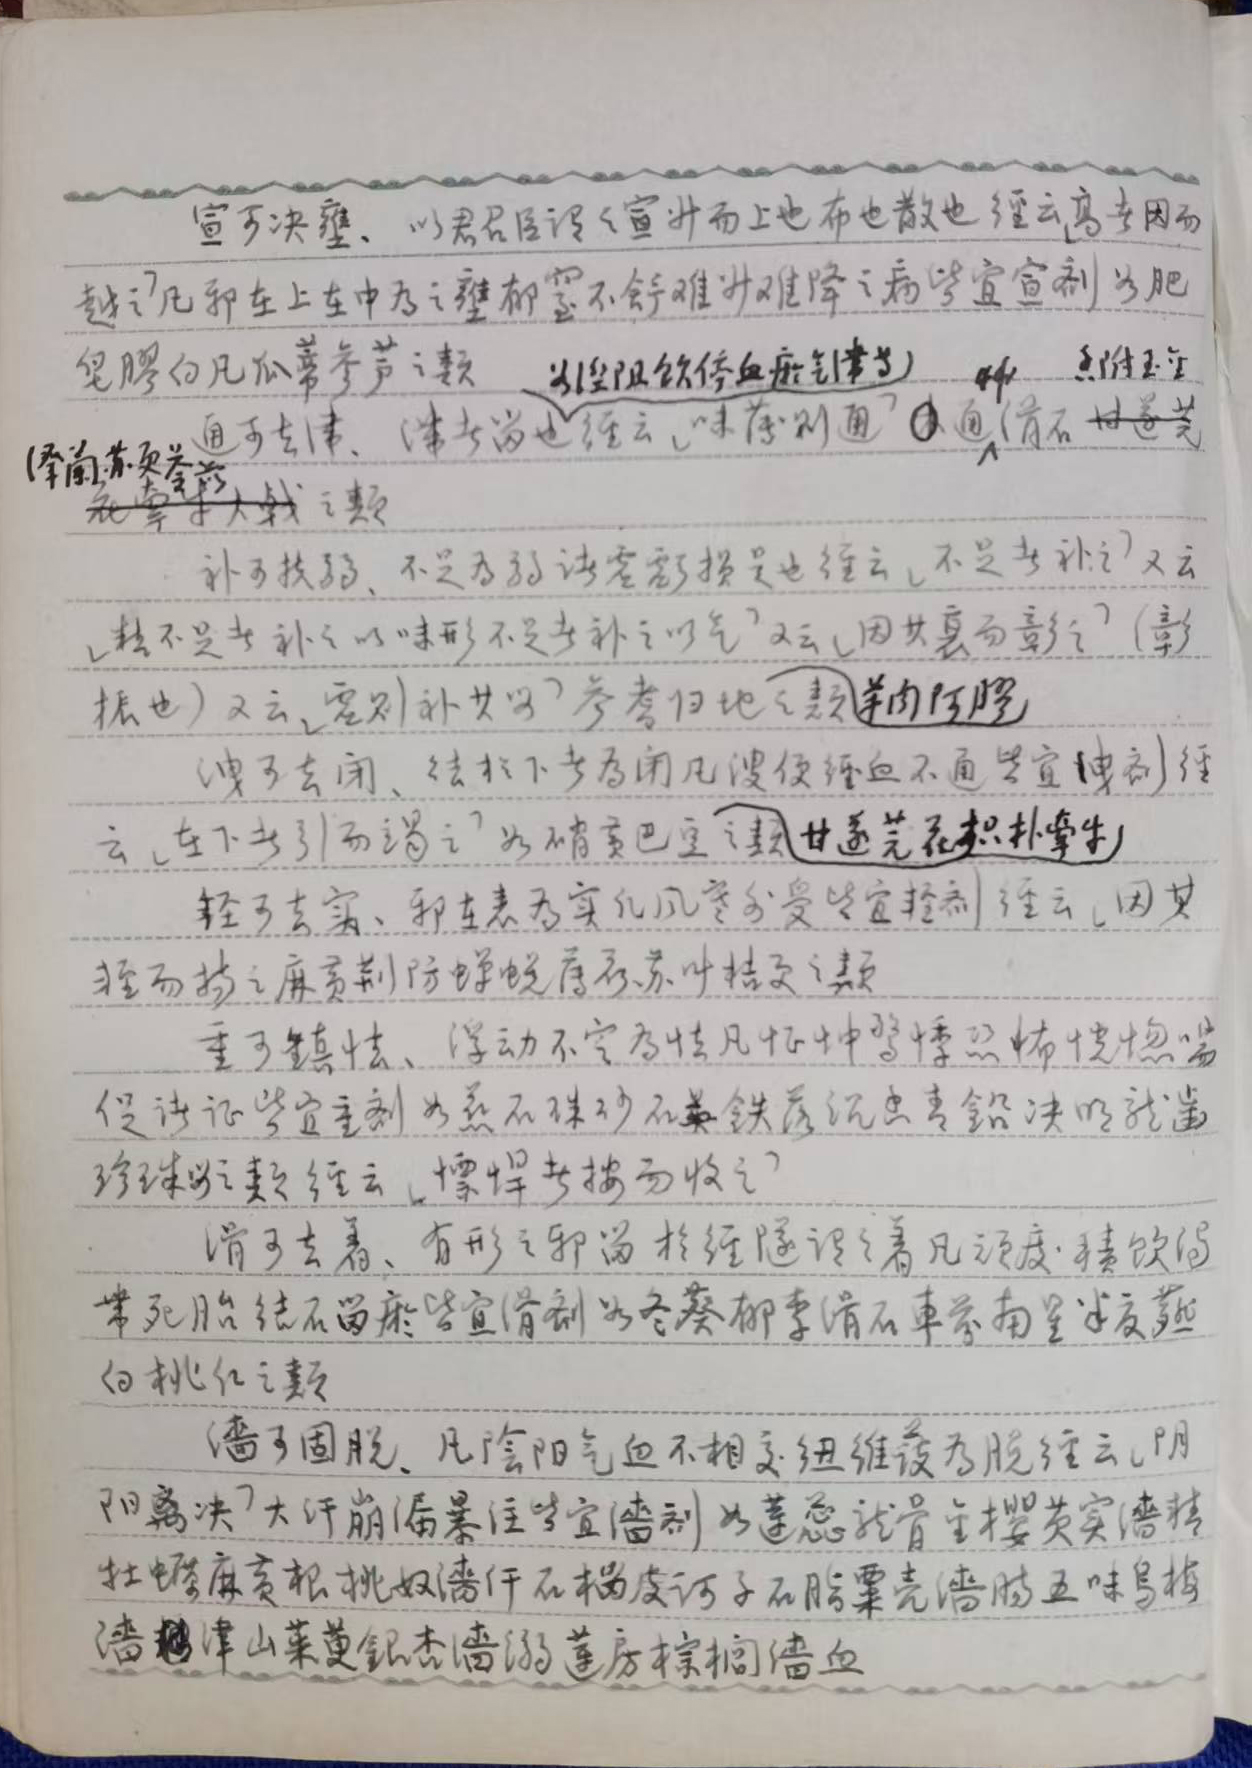 宣可决壅、以君召臣谓之宣升而上也布也散也經云「高者因而
越之」凡邪在上在中為之壅郁窒不舒难升难降之病皆宜宣剂如肥
皂膠白凡瓜蒂参芦之類
如經阻飲停血瘀气滞等
香附玉金
通可去滞、滞者留也經云「味薄则通」通滑石甘遂芫
泽蘭苏
花牵牛大戟之類
补可扶弱、不足為弱诸虚虧损是也經云「不足者补之」又云
「精不足者补之以味形不足者补之以气」又云「因其衰而彰之」（彰
振也）又云「虚则补其」参耆归地之類羊肉阿膠
洩可去闭、结於下者為闭凡溲便經血不通皆宜洩剂經
云「在下者引而竭之」如硝黄巴豆之類甘遂芫花枳朴牽牛
轻可去实、邪在表為实凡风寒外受皆宜轻剂經云「因其
轻而扬之麻黄荆防蟬蜕薄荷苏叶桔更之類
重可鎮怯、浮动不定為怯凡怔忡驚悸恐怖恍惚喘
促诸证皆宜重剂如磁石珠砂石英鉄落沉香青鉛决明龙齒
珍珠之類經云「慓悍者按而收之」
滑可去着、有形之邪留於經隧谓之着凡頑痰積飲濁
帶死胎结石留瘀皆宜滑剂如冬葵郁李滑石車前南星半夏薤
白桃仁之類
濇可固脱、凡陰阳气血不相交纽維護為脱經云「阴
阳离决」大汗崩漏暴注皆宜濇剂如蓮蕊龙骨金櫻芡实濇精
牡蠣麻黄根桃奴濇汗石榴皮诃子石脂粟壳濇肠五味烏梅
濇津山茱萸銀杏濇溺蓮房棕榈濇血